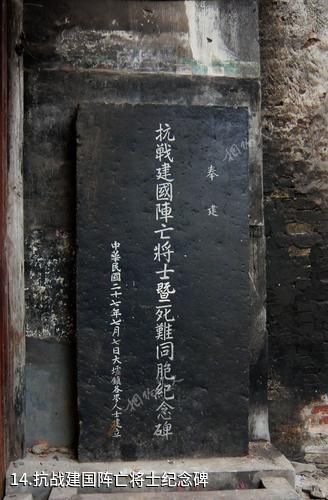 奉建
抗戰建國陣亡將士暨死難同胞紀念碑
中華民國二十七年七月七日大墟鎮各界人士建立
14.抗战建国阵亡将士纪念碑